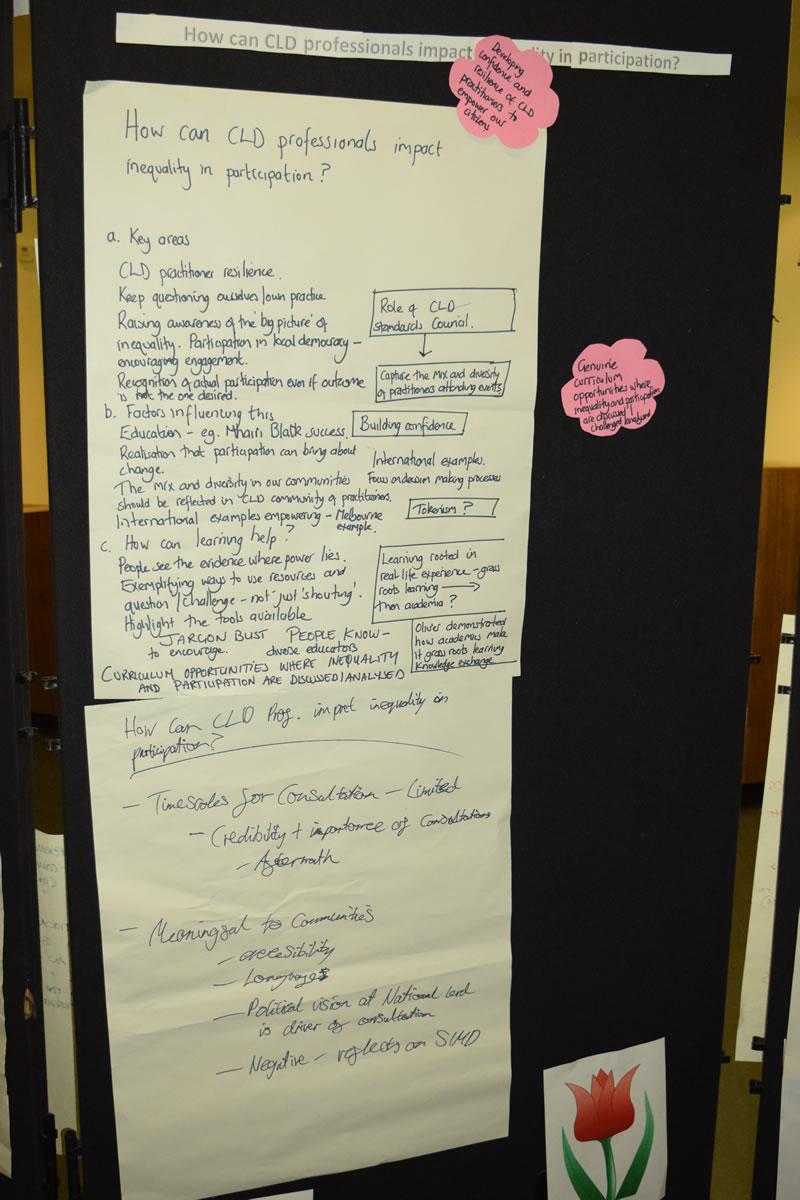 How can CLD professionals impact
in participation?
Developing
confidence and
resilience of CLD
practitioners to
empower our
citizens
How can CLD professionals impact
inequality in participation?
a. Key areas
CLD practitioner resilience.
Keep questioning ourselves/own practice
Raising awareness of the 'big picture' of
inequality. Participation in local democracy –
encouraging engagement.
Recognition of actual participation even if outcome
is not the one desired.
Role of CLD
Standards Council.
Capture the mix and diversity
of practitioners attending events.
b. Factors influencing this
Education – eg. Mhairi Black success.
Building confidence
Realisation that participation can bring about
change.
International examples.
Focus on decision making processes
The mix and diversity in our communities
should be reflected in CLD community of practitioners.
International examples empowering – Melbourne
example.
Tokenism?
c. How can learning help?
People see the evidence where power lies.
Exemplifying ways to use resources and
question/challenge – not just 'shouting'.
Highlight the tools available
Learning rooted in
real life experience – grass
roots learning →
then academia?
JARGON BUST PEOPLE KNOW –
to encourage. diverse educators
Oliver demonstrated
how academics make
it grass roots learning
Knowledge exchange
CURRICULUM OPPORTUNITIES WHERE INEQUALITY
AND PARTICIPATION ARE DISCUSSED/ANALYSED
Genuine
curriculum
opportunities where
inequality and participation
are discussed/
challenged/analysed
How can CLD Prof. impact inequality in
participation?
– Timescales for Consultation – Limited
– Credibility + importance of Consultations
– Aftermath
– Meaningful to Communities
– accessibility
– Languages
– Political vision at National level
is driver of consultation
– Negative – reflects on SIMD